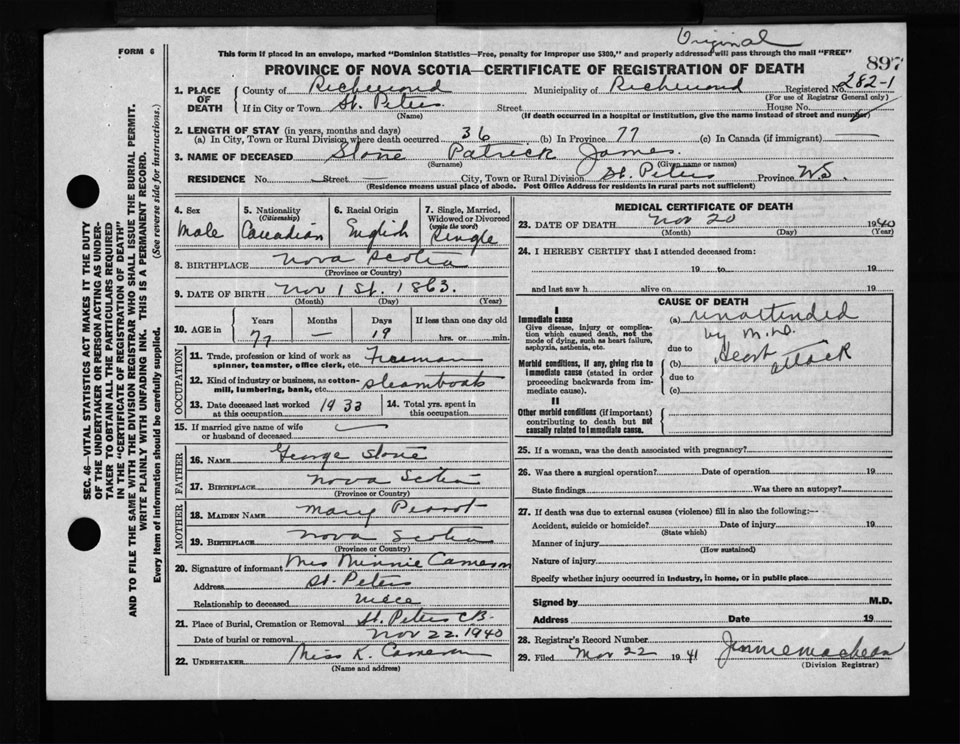 Original
FORM 6
This form if placed in an envelope, marked "Dominion Statistics—Free, penalty for improper use $300," and properly addressed will pass through the mail "FREE"
897
PROVINCE OF NOVA SCOTIA—CERTIFICATE OF REGISTRATION OF DEATH
1. PLACE OF DEATH County of Richmond Municipality of Richmond Registered No. 282-1
(For use of Registrar General only)
If in City or Town St. Peters Street House No.
(Name) (If death occurred in a hospital or Institution, give the name instead of street and number)
2. LENGTH OF STAY (in years, months and days)
(a) In City, Town or Rural Division where death occurred 36 (b) In Province 77 (c) In Canada (if immigrant) —
3. NAME OF DECEASED Stone Patrick James.
(Surname) (Given name or names)
RESIDENCE No. — Street — City, Town or Rural Division St. Peters Province NS.
(Residence means usual place of abode. Post Office Address for residents in rural parts not sufficient)
SEC. 46—VITAL STATISTICS ACT MAKES IT THE DUTY
OF THE UNDERTAKER OR PERSON ACTING AS UNDER-
TAKER TO OBTAIN ALL THE PARTICULARS REQUIRED
IN THE "CERTIFICATE OF REGISTRATION OF DEATH"
AND TO FILE THE SAME WITH THE DIVISION REGISTRAR WHO SHALL ISSUE THE BURIAL PERMIT.
WRITE PLAINLY WITH UNFADING INK. THIS IS A PERMANENT RECORD.
Every item of information should be carefully supplied. (See reverse side for instructions.)
4. Sex Male
5. Nationality (Citizenship) Canadian
6. Racial Origin English
7. Single, Married, Widowed or Divorced (write the word) Single
8. BIRTHPLACE Nova Scotia
(Province or Country)
9. DATE OF BIRTH Nov 1st. 1863.
(Month) (Day) (Year)
10. AGE in Years 77 Months — Days 19 If less than one day old hrs. or min.
OCCUPATION
11. Trade, profession or kind of work as spinner, teamster, office clerk, etc. Fireman
12. Kind of industry or business, as cotton-mill, lumbering, bank, etc. Steamboats
13. Date deceased last worked at this occupation 1933
14. Total yrs. spent in this occupation
15. If married give name of wife or husband of deceased —
FATHER
16. NAME George Stone
17. BIRTHPLACE Nova Scotia
(Province or Country)
MOTHER
18. MAIDEN NAME Mary Perrot
19. BIRTHPLACE Nova Scotia
(Province or Country)
20. Signature of informant Mrs Minnie Cameron
Address St. Peters
Relationship to deceased niece
21. Place of Burial, Cremation or Removal St. Peters CB.
Date of burial or removal Nov 22. 1940
22. UNDERTAKER Miss K. Cameron
(Name and address)
MEDICAL CERTIFICATE OF DEATH
23. DATE OF DEATH Nov 20 1940
(Month) (Day) (Year)
24. I HEREBY CERTIFY that I attended deceased from:
19 to 19
and last saw h alive on 19
CAUSE OF DEATH
I
Immediate cause
Give disease, injury or complication which caused death, not the mode of dying, such as heart failure, asphyxia, asthenia, etc.
(a) unattended
by M.D.
due to
Morbid conditions, if any, giving rise to immediate cause (stated in order proceeding backwards from immediate cause).
(b) Heart attack
due to
(c)
II
Other morbid conditions (if important) contributing to death but not causally related to immediate cause.
25. If a woman, was the death associated with pregnancy?
26. Was there a surgical operation? Date of operation 19
State findings Was there an autopsy?
27. If death was due to external causes (violence) fill in also the following:—
Accident, suicide or homicide? Date of injury 19
(State which)
Manner of injury
(How sustained)
Nature of injury
Specify whether injury occurred in industry, in home, or in public place
Signed by M.D.
Address Date 19
28. Registrar's Record Number
29. Filed Mar 22 1941 Jennie MacLean
(Division Registrar)